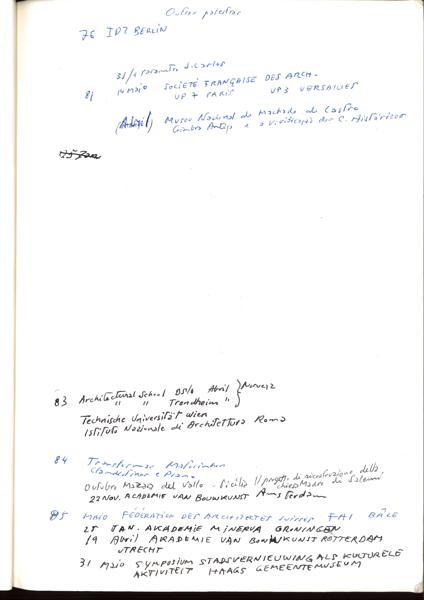 Outras palestras
76 IDZ BERLIN
14 Maio SOCIETÉ FRANÇAISE DES ARCH.
81 UP 7 PARIS UP3 VERSAILLES
(Abril) Museu Nacional de Machado de Castro
Coimbra Antiga e a vivificação dos C. Históricos
83 Architectural School Oslo Abril } Noruega
" " Trondheim "
Technische Universität Wien
Istituto Nazionale di Architettura Roma
84
Outubro Mazara del Vallo - Sicilia // progetto di ricostruzione della
chiesa Madre di Salemi
22 NOV. ACADEMIE VAN BOUWKUNST Amsterdam
85 MAIO FÉDÉRATION DES ARCHITECTES SUISSES FAI BÂLE
25 JAN. AKADEMIE MINERVA GRONINGEN
19 Abril ACADEMIE VAN BOUWKUNST ROTTERDAM
UTRECHT
31 Maio SYMPOSIUM STADSVERNIEUWING ALS KULTURELE
AKTIVITEIT HAAGS GEMEENTEMUSEUM